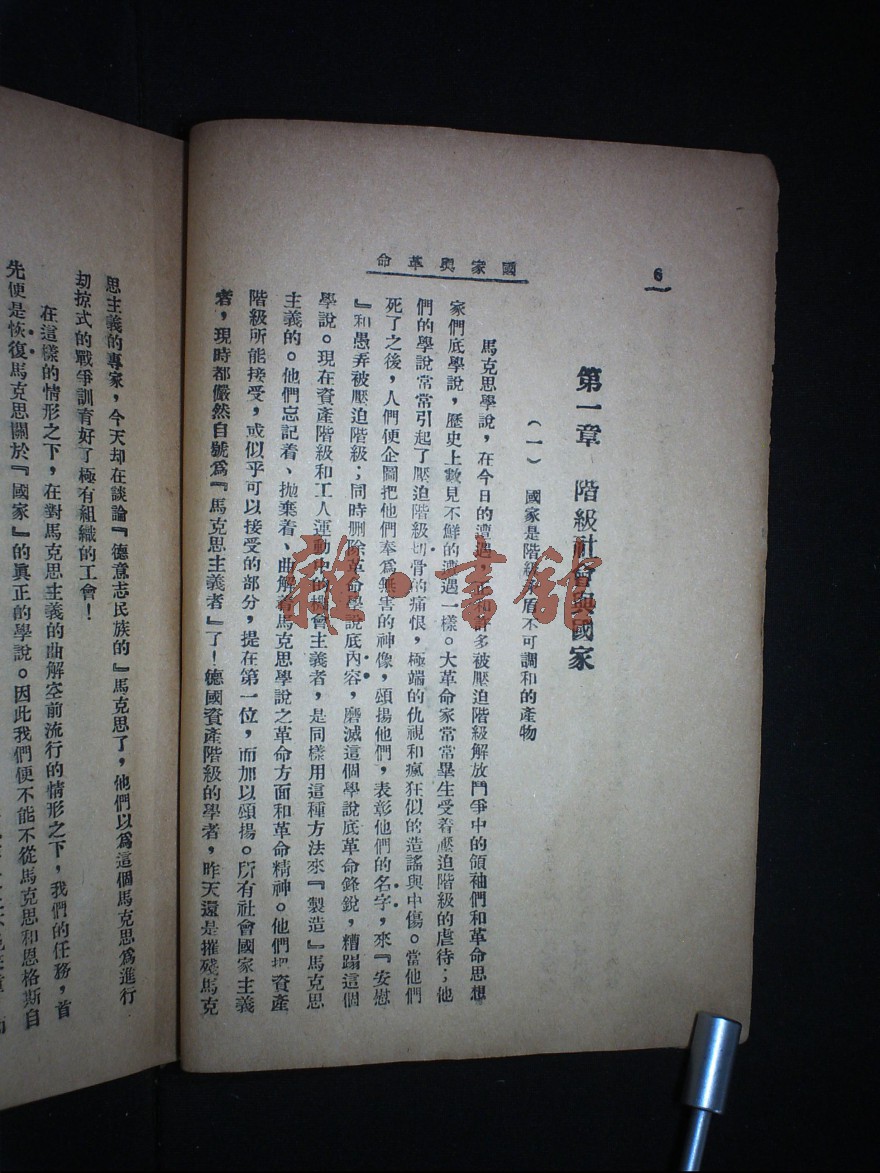 6
國家與革命
第一章 階級社會與國家
(一) 國家是階級矛盾不可調和的產物
馬克思學說，在今日的遭遇，正和許多被壓迫階級解放鬥爭中的領袖們和革命思想
家們底學說，歷史上數見不鮮的遭遇一樣。大革命家常常畢生受着壓迫階級的虐待；他
們的學說常常引起了壓迫階級切骨的痛恨，極端的仇視和瘋狂似的造謠與中傷。當他們
死了之後，人們便企圖把他們奉爲無害的神像，頌揚他們，表彰他們的名字，來『安慰
』和愚弄被壓迫階級；同時删除革命學說底內容，磨滅這個學說底革命鋒銳，糟蹋這個
學說。現在資產階級和工人運動中的機會主義者，是同樣用這種方法來『製造』馬克思
主義的。他們忘記着、拋棄着、曲解着馬克思學說之革命方面和革命精神。他們把資產
階級所能接受，或似乎可以接受的部分，提在第一位，而加以頌揚。所有社會國家主義
者，現時都儼然自號爲『馬克思主義者』了！德國資產階級的學者，昨天還是摧殘馬克
思主義的專家，今天却在談論『德意志民族的』馬克思了，他們以爲這個馬克思爲進行
劫掠式的戰爭訓育好了極有組織的工會！
在這樣的情形之下，在對馬克思主義的曲解空前流行的情形之下，我們的任務，首
先便是恢復馬克思關於『國家』的眞正的學說。因此我們便不能不從馬克思和恩格斯自
雜·書館